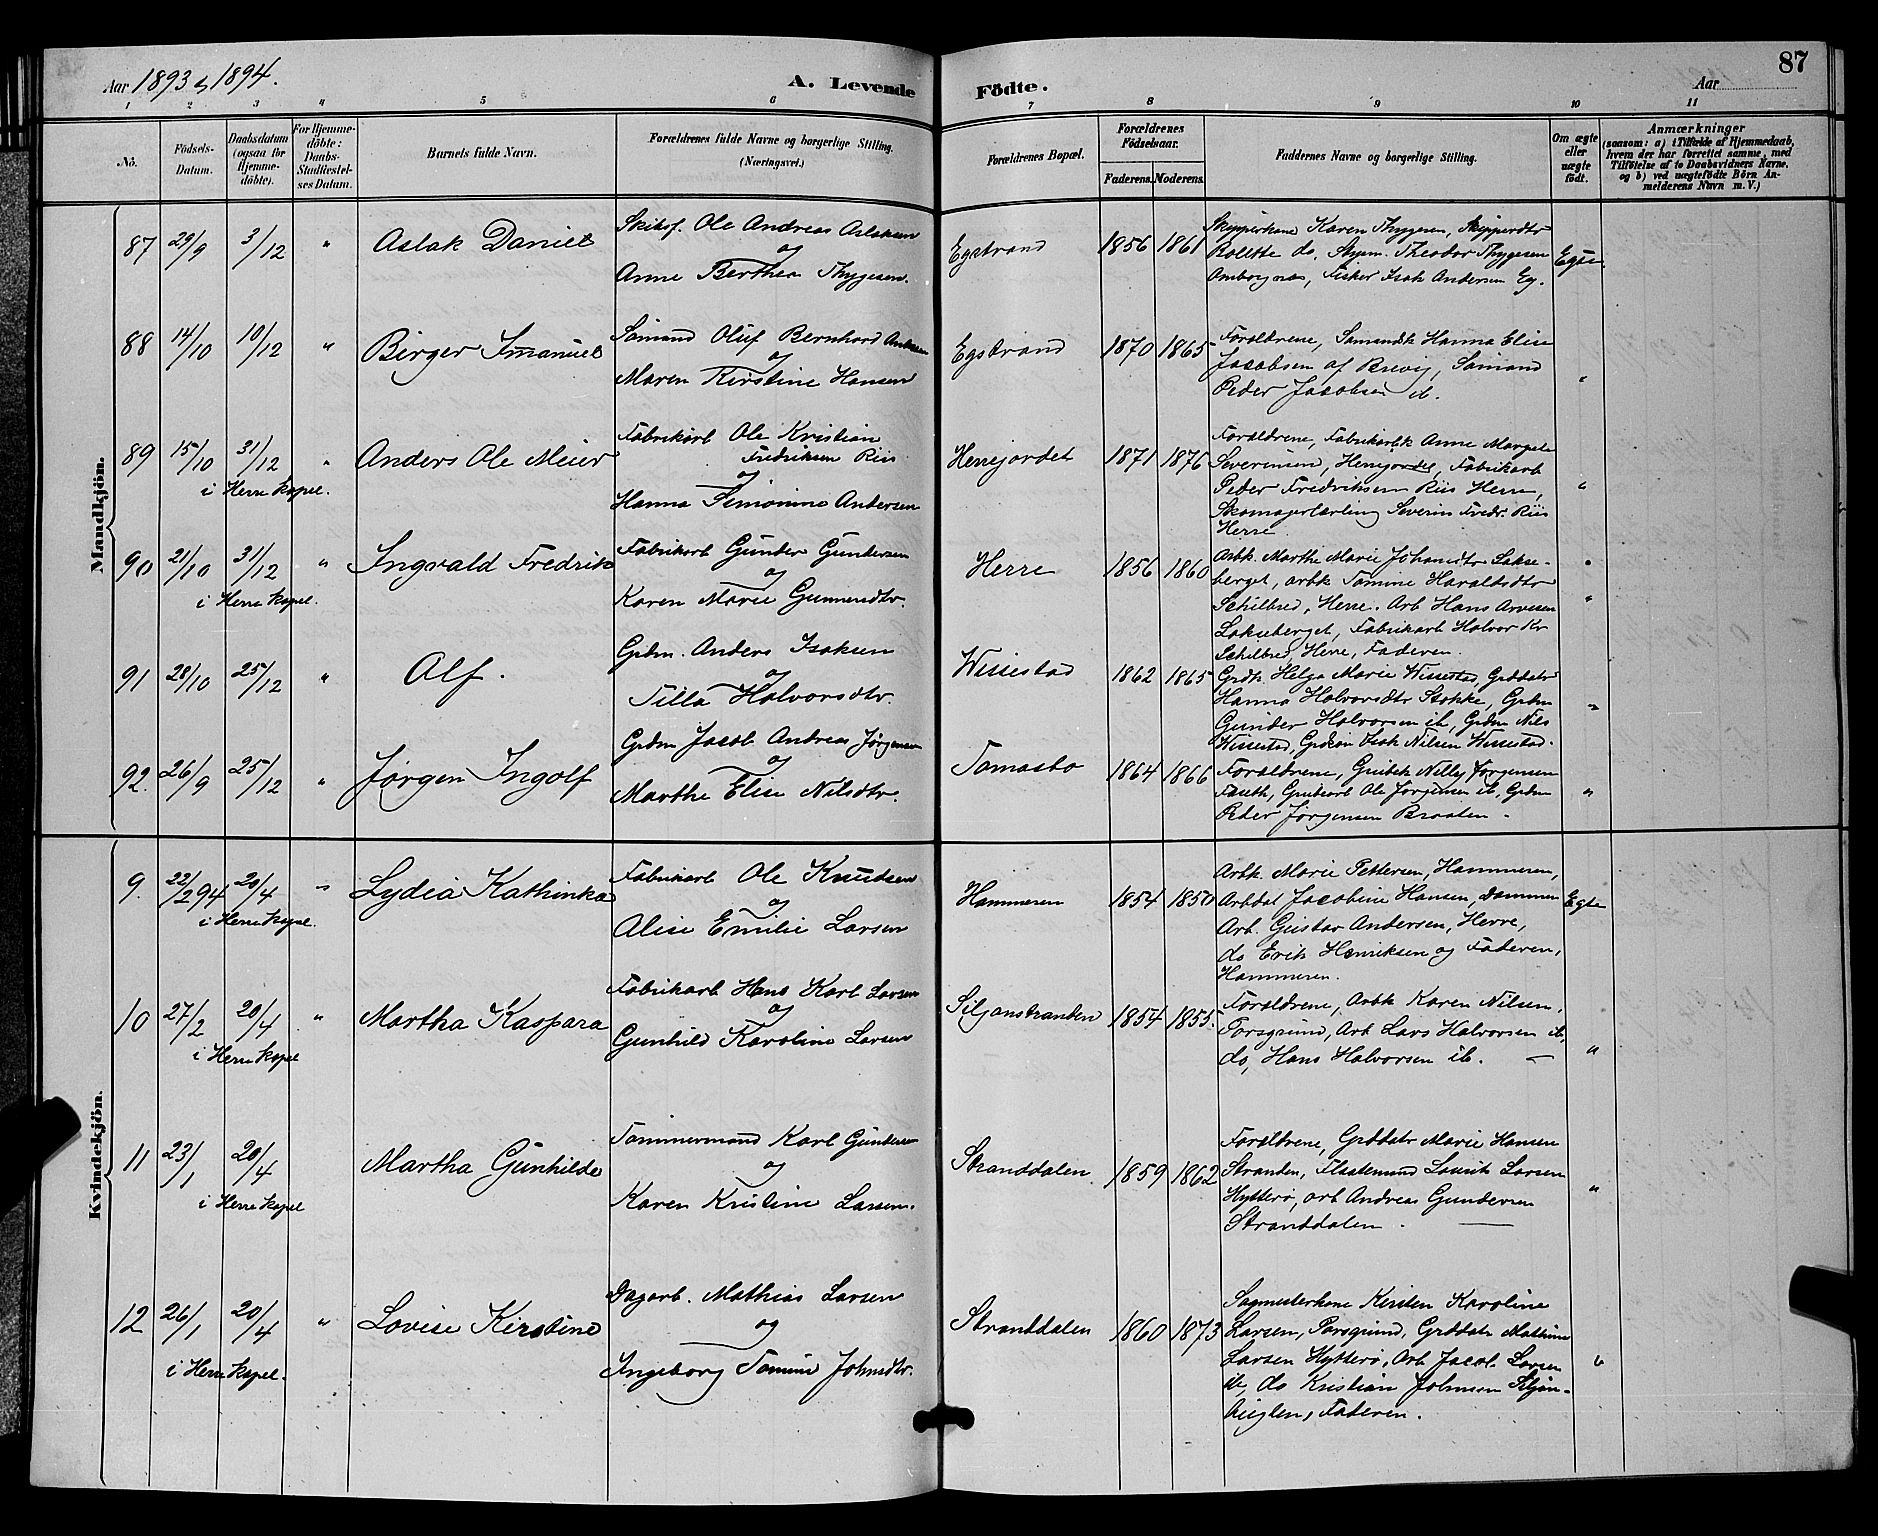 Aar 1893 & 1894. A. Levende Födte. Aar 87
1 2 3 4 5 6 7 8 9 10 11
No. Födsels-Datum. Daabsdatum (ogsaa for Hjemme-döbte). For Hjemme-döbte: Daabs-Stadfæstel-ses Datum. Barnets fulde Navn. Forældrenes fulde Navne og borgerlige Stilling. (Næringsvei.) Forældrenes Bopæl. Forældrenes Födselsaar. Faderens. Moderens. Faddernes Navne og borgerlige Stilling. Om ægte eller uægte födt. Anmærkninger (saasom: a) i Tilfælde af Hjemmedaab, hvem der har forrettet samme, med Tilföielse af to Daabsvidners Navne, og b) ved uægtefödte Börn Anmelderens Navn m. V.)
Mandkjön.
87 29/9 3/12 " Aslak Daniel
Ole Andreas Aslaksen
og
Anne Berthea Thygesen.
Egstrand 1856 1861
Skipperkone Karen Thygesen, Skipperdtr
Bolette do, Styrm. Theodor Thygesen
Fisker Isak Andersen Eg.
Egte.
88 14/10 10/12 " Birger Imanuel
Sømand Oluf Bernhard Andersen
og
Maren Kirstine Hansen
Egstrand 1870 1865
Forældrene, Sømandsk Hanna Elise
Jacobsen af Brevig, Sømand
Peder Jacobsen ib.
"
89 15/10 31/12 " Anders Ole Meier
i Herre kapel.
Fabrikarb Ole Kristian
Fredriksen Riis
og
Hanna Simonine Andersen
Herrejordet 1871 1876
Forældrene, Fabrikarbk Anne Margete
Severinsen, Herrejordet, Fabrikarb
Peder Fredriksen Riis Herre,
Skomagerlærling Severin Fredr. Riis
Herre
"
90 21/10 31/12 " Ingvald Fredrik
i Herre kapel.
Fabrikarb Gunder Gundersen
og
Karen Marie Gunnersdtr.
Herre 1856 1860
Arbk. Marthe Marie Johansdtr Lakse-
berget, arbk Tomine Haraldsdtr
Schilbred, Herre. Arb Hans Arvesen
Lakseberget, Fabrikarb Halvor Kr
Schilbred, Herre, Faderen.
"
91 28/10 25/12 " Alf.
Grdm. Anders Isaksen
og
Tilla Halvorsdtr.
Wissestad 1862 1865
Grdk. Helga Marie Wissestad, Grddatr
Hanna Halvorsdtr Stokke, Grdm
Gunder Halvorsen ib, Grdm Nils
Wissestad, Grdsøn Isak Nilsen Wissestad.
"
92. 26/9 25/12 " Jørgen Ingolf
Grdm Jacob Andreas Jørgensen
og
Marthe Elise Nilsdtr.
Tomasbo 1864 1866
Forældrene, Grubek Nilly Jørgensen
Grubearb Ole Jørgensen ib, Grdm
Peder Jørgensen Braaten.
"
Kvindekjön.
9. 22/2 94 20/4 " Lydia Kathinka
i Herre kapel.
Fabrikarb Ole Knudsen
og
Alise Emilie Larsen
Hammeren 1854 1850
Arbk. Marie Pettersen, Hammeren,
Arbdat Jacobine Hansen, Dammen
Arb. Gustav Andersen, Herre,
do Erik Henriksen og Faderen,
Hammeren.
Egte
10 27/2 20/4 " Martha Kaspara
i Herre kapel
Fabrikarb Hans Karl Larsen
og
Gunhild Karoline Larsen
Siljanstranden 1854 1855.
Forældrene, Arbk Karen Nilsen,
Porsgrund, Arb Lars Halvorsen ib,
do, Hans Halvorsen ib.
"
11 23/1 20/4 Martha Gunhilde
i Herre kapel
Tømmermand Karl Gundersen
og
Karen Kristine Larsen.
Stranddalen 1859 1862
Forældrene, Grddatr Marie Hansen
Stranden, Flaatemand Laurits Larsen
Hytterø, arb Andreas Gundersen
Stranddalen.
"
12 26/1 20/4 " Lovise Kirstine
i Herre kapel.
Dagarb. Mathias Larsen
og
Ingeborg Tomine Johnsdtr.
Stranddalen 1860 1873
Sagmesterkone Kirsten Karoline
Larsen, Porsgrund, Grddatr Mathine
Larsen Hytterø, Arb Jacob Larsen
ib, do Kristian Johnsen
Faderen.
"